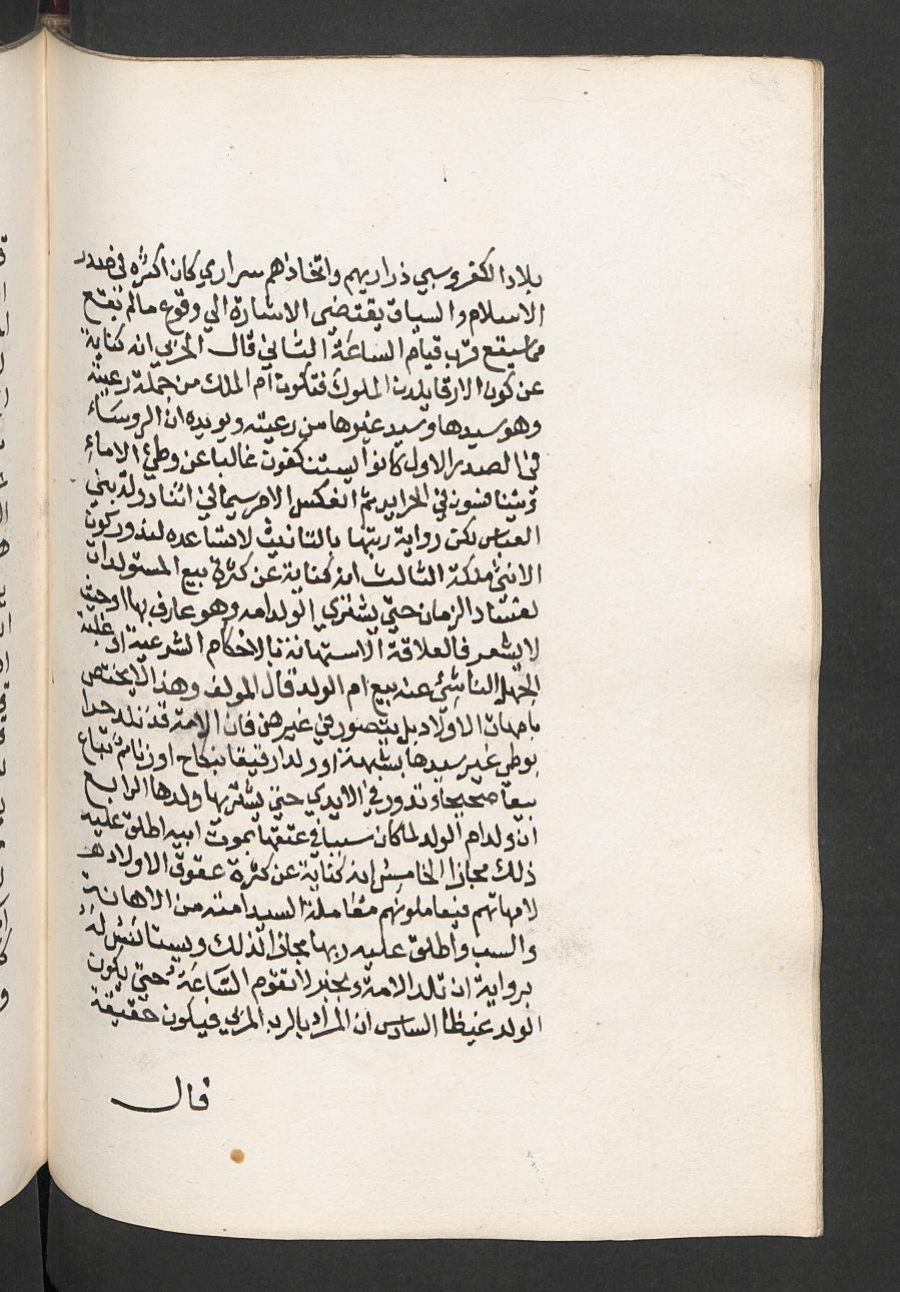 بلاد الكفر وسبي ذراريهم واتخاذهم سراري كان اكثره في صدر
الاسلام والسياق يقتضي الاشارة الي وقوع مالم يقع
مما سيقع قرب قيام الساعة الثاني قال الحربي انه كناية
عن كون الارقا يلدن الملوك فتكون ام الملك من جملة رعيته
وهو سيدها وسيد غيرها من رعيته ويويده ان الروساء
في الصدر الاول كانوا يستنكفون غالبا عن وطئ الاماء
ويتنافسون في الحراير ثم انعكس الامر سيما في اثناء دولة بني
العباس لكن رواية ربتها بالتانيث لا تساعده لندور كون
الانثي ملكة الثالث انه كناية عن كثرة بيع المستولدات
لفساد الزمان حتي يشتري الولد امه وهو عارف بها او حيث
لا يشعر فالعلاقة الاستهانة بالاحكام الشرعية او غلبة
الجهل الناشئ عنه بيع ام الولد قال المولف وهذا لا يختص
بامهات الاولاد بل يتصور في غيرهن فان الامة قد تلد حرا
بوطي غير سيدها بشبهة او ولدا رقيقا بنكاح او زنا ثم تباع
بيعا صحيحا وتدور في الايدي حتي يشتريها ولدها الرابع
ان ولد ام الولد لما كان سببا في عتقها بموت ابيه اطلق عليه
ذلك مجازا الخامس انه كناية عن كثرة عقوق الاولاد
لامهاتهم فيعاملونهم معاملة السيد امته من الاهانة
والسب واطلق عليه ربها مجازا لذلك ويستانس له
برواية ان تلد الامة وبخبر لا تقوم الساعة حتي يكون
الولد غيظا السادس ان المراد بالرب المربي فيكون حقيقة
قال